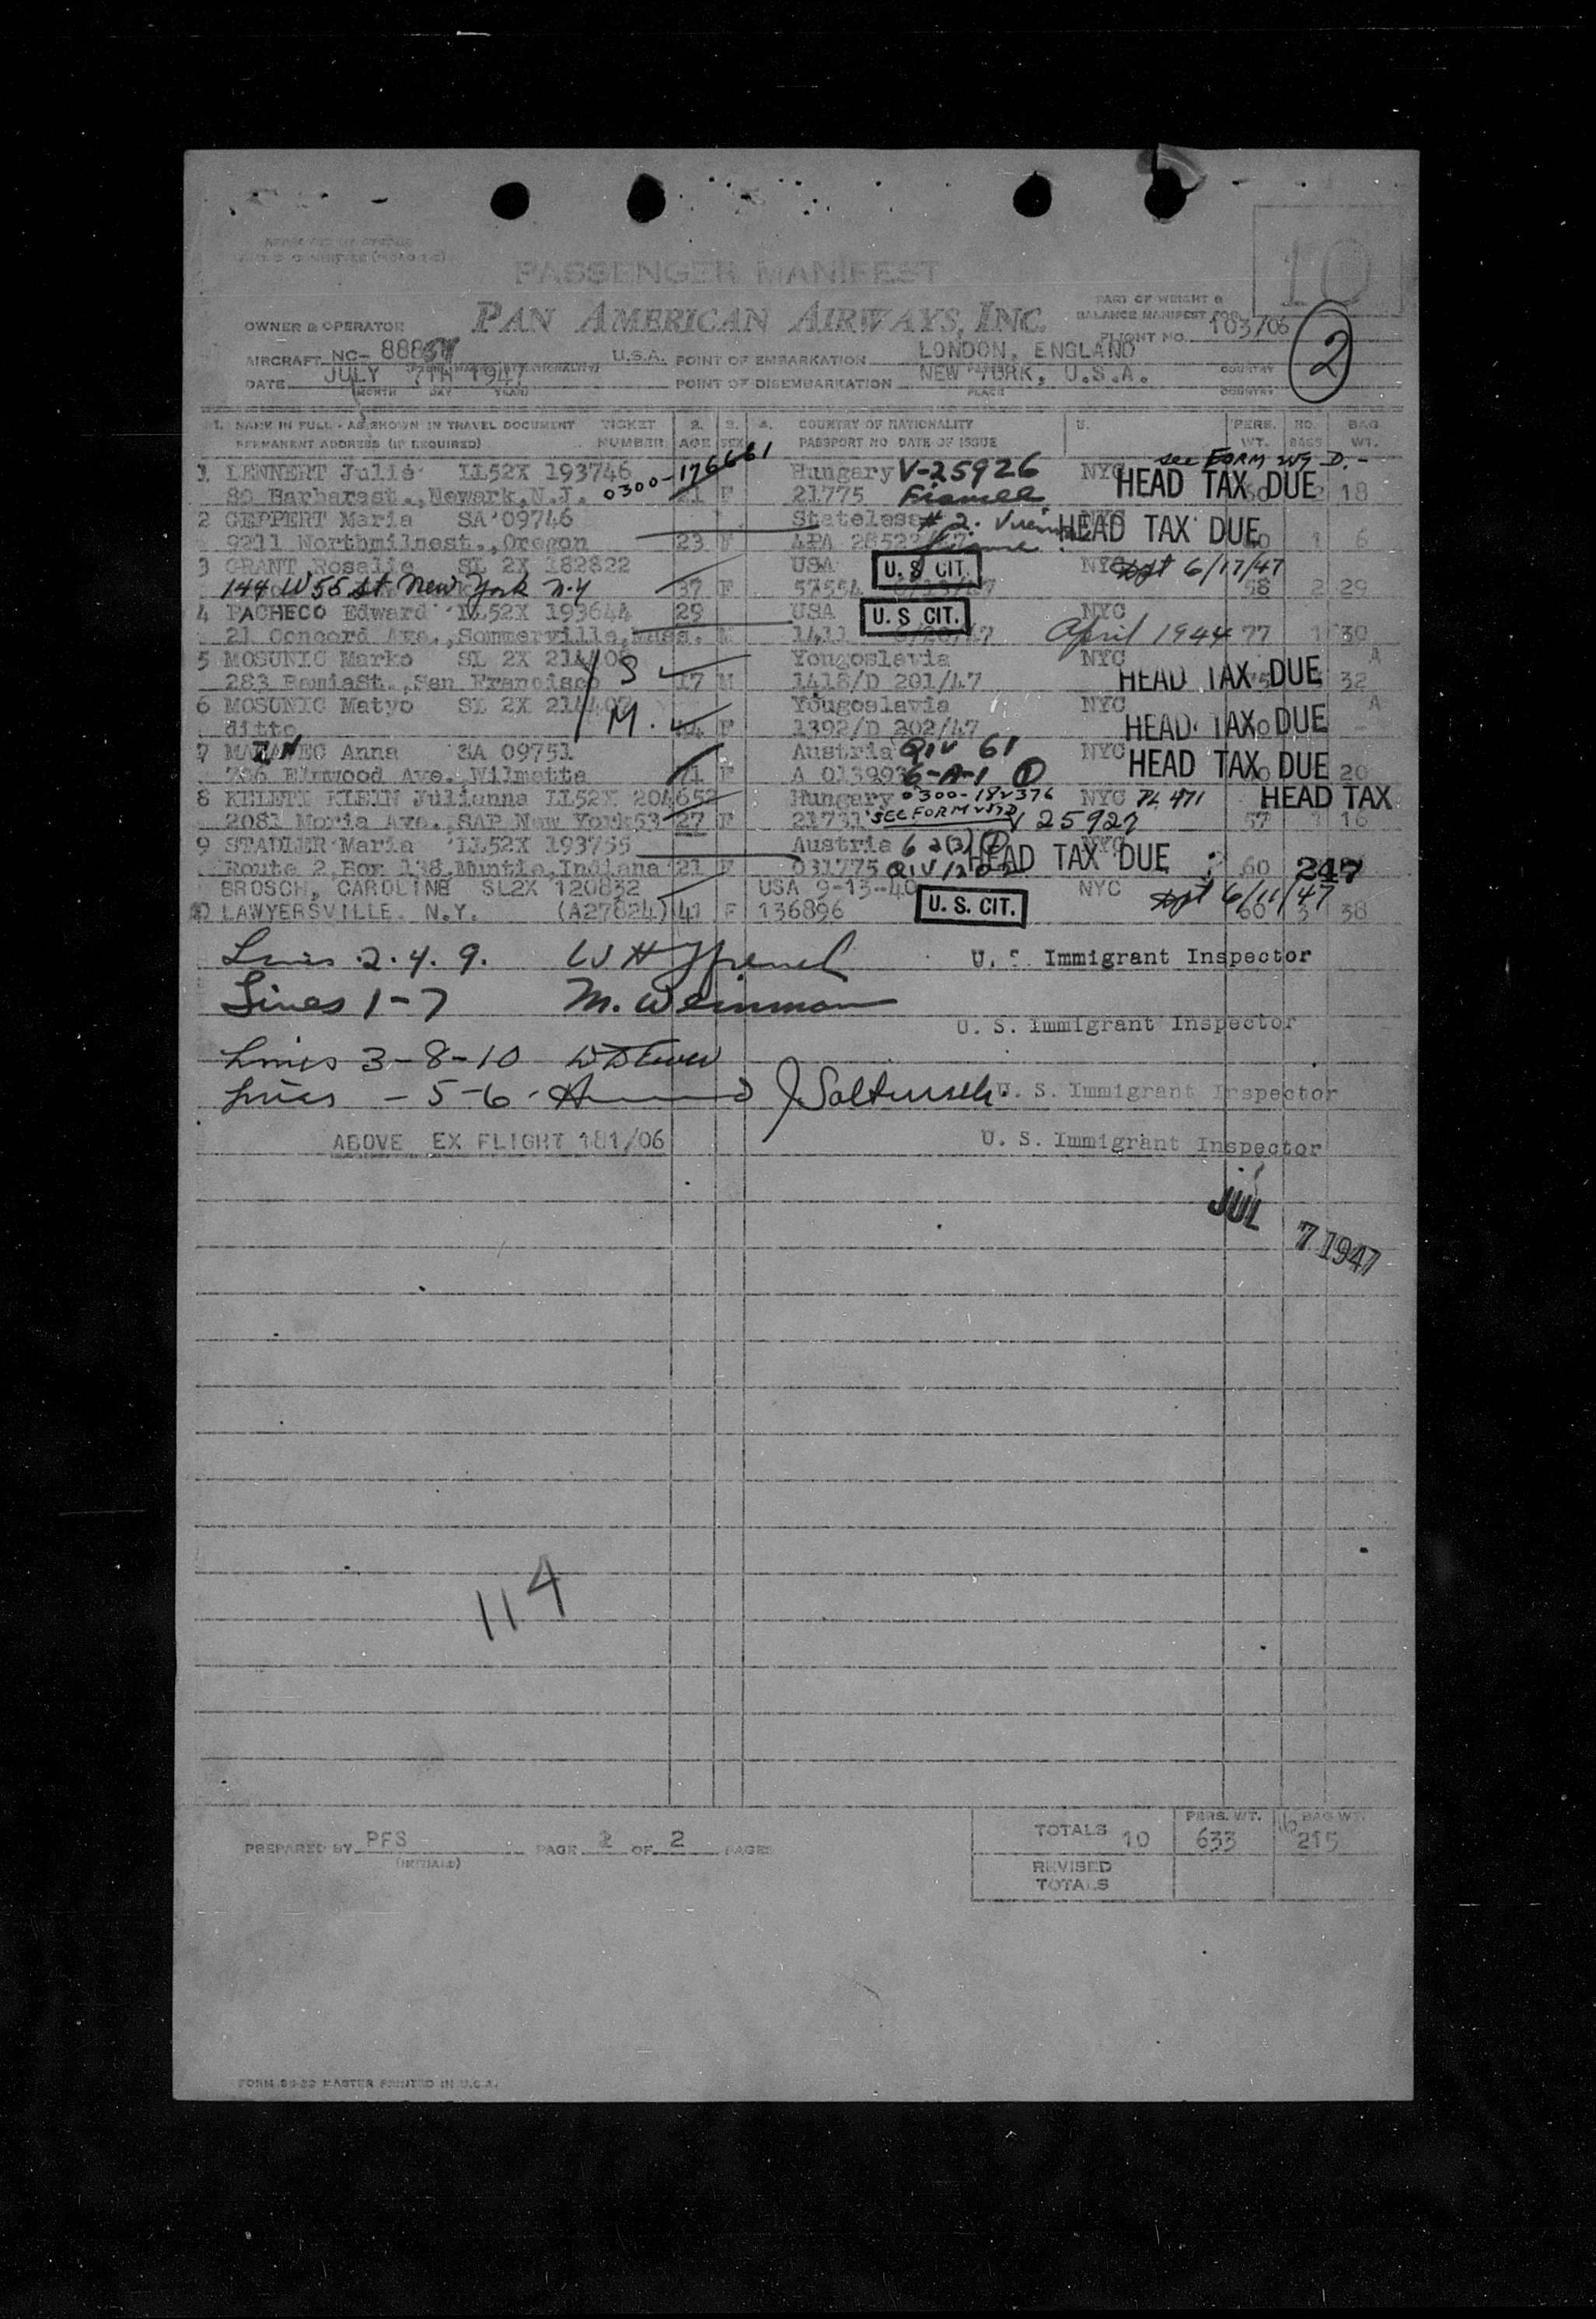 PASSENGER MANIFEST
PAN AMERICAN AIRWAYS, INC.
10
PART OF WEIGHT &
BALANCE MANIFEST FOR
FLIGHT NO. 103/06
2
OWNER & OPERATOR
AIRCRAFT NC- 888 U.S.A. POINT OF EMBARKATION LONDON, ENGLAND COUNTRY
DATE JULY 7TH 1947 POINT OF DISEMBARKATION NEW YORK, U.S.A. COUNTRY
MONTH DAY YEAR PLACE
1. NAME IN FULL - AS SHOWN IN TRAVEL DOCUMENT TICKET 2. 3. 4. COUNTRY OF NATIONALITY 5. PERS. NO. BAG
PERMANENT ADDRESS (IF REQUIRED) NUMBER AGE SEX PASSPORT NO DATE OF ISSUE WT. BAGS WT.
see FORM W9 D.-
1 LENNERT Julie LL52X 193746 0300-176661 Hungary V-25926 NYC HEAD TAX DUE
80 Barbarast., Newark, N.J. 21 F 21775 2 18
2 GEPPERT Maria SA 09746 Stateless # 2. NYC HEAD TAX DUE
9211 Northmilnest., Oregon 23 F APA 1 6
3 GRANT Rosalie SL 2X 182822 USA U. S CIT. NYC Dept 6/17/47
144 W 55 St New York N.Y 37 F 57554 58 2 29
4 PACHECO Edward LL52X 193644 29 USA U. S CIT. NYC
21 Concord Ave., Sommerville, Mass. M 1411 April 1944 77 1 30
5 MOSUNIC Marko SL 2X S Yougoslavia NYC HEAD TAX DUE A
283 RamiaSt., San Francisco 17 M 1418/D 201/47 32
6 MOSUNIC Matyo SL 2X M. Yougoslavia NYC HEAD TAX DUE A
ditto 44 F 1392/D 202/47 -
7 Anna SA 09751 Austria QIV 61 NYC HEAD TAX DUE
786 Elmwood Ave. Wilmette 71 F A 013993 6-A-1 20
8 KELETI KLEIN Julianna LL52X 204652 Hungary 0300-182376 NYC PL 471 HEAD TAX
2081 Moria Ave., SAP New York53 27 F SEE FORM W9D V 25927 57 3 16
9 STADLER Maria LL52X 193755 Austria 6 2(3) NYC HEAD TAX DUE
Route 2, Box 138, Muntie, Indiana 21 F 031775 QIV 60 247
BROSCH, CAROLINE SL2X 120832 USA 9-13-40 NYC Dept 6/11/47
10 LAWYERSVILLE. N.Y. (A27624) 41 F 136896 U. S. CIT. 60 3 38
Lines 2. 4. 9. W H French U. S Immigrant Inspector
Lines 1-7 M. Weinman U. S. Immigrant Inspector
Lines 3-8-10
Lines - 5-6 U. S. Immigrant Inspector
ABOVE EX FLIGHT 181/06 U. S. Immigrant Inspector
JUL 7 1947
114
PREPARED BY PFS PAGE 2 OF 2 PAGES
(INITIALS)
PERS. WT. BAG WT.
TOTALS 10 633 215
REVISED
TOTALS
FORM MASTER PRINTED IN U.S.A.